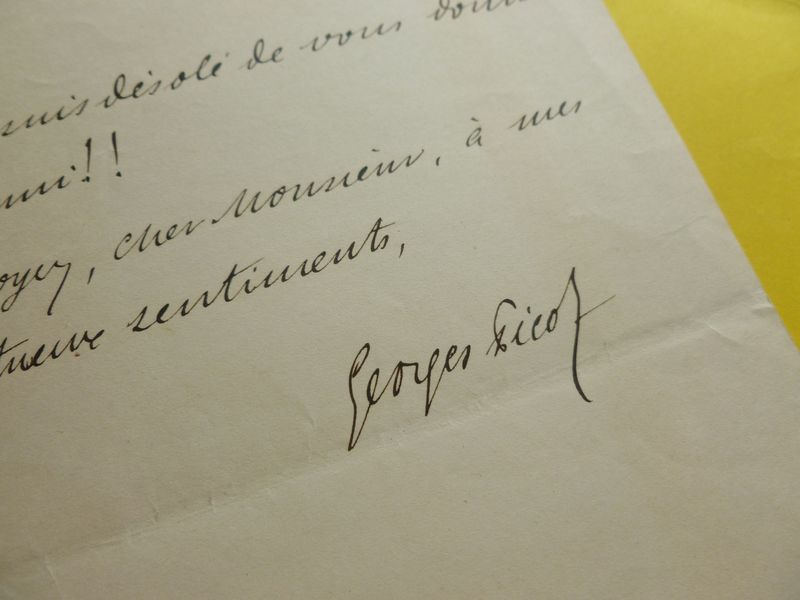 suis désolé de vous donn
nui!!
oyez, cher Monsieur, à mes
tueux sentiments,
Georges Picot